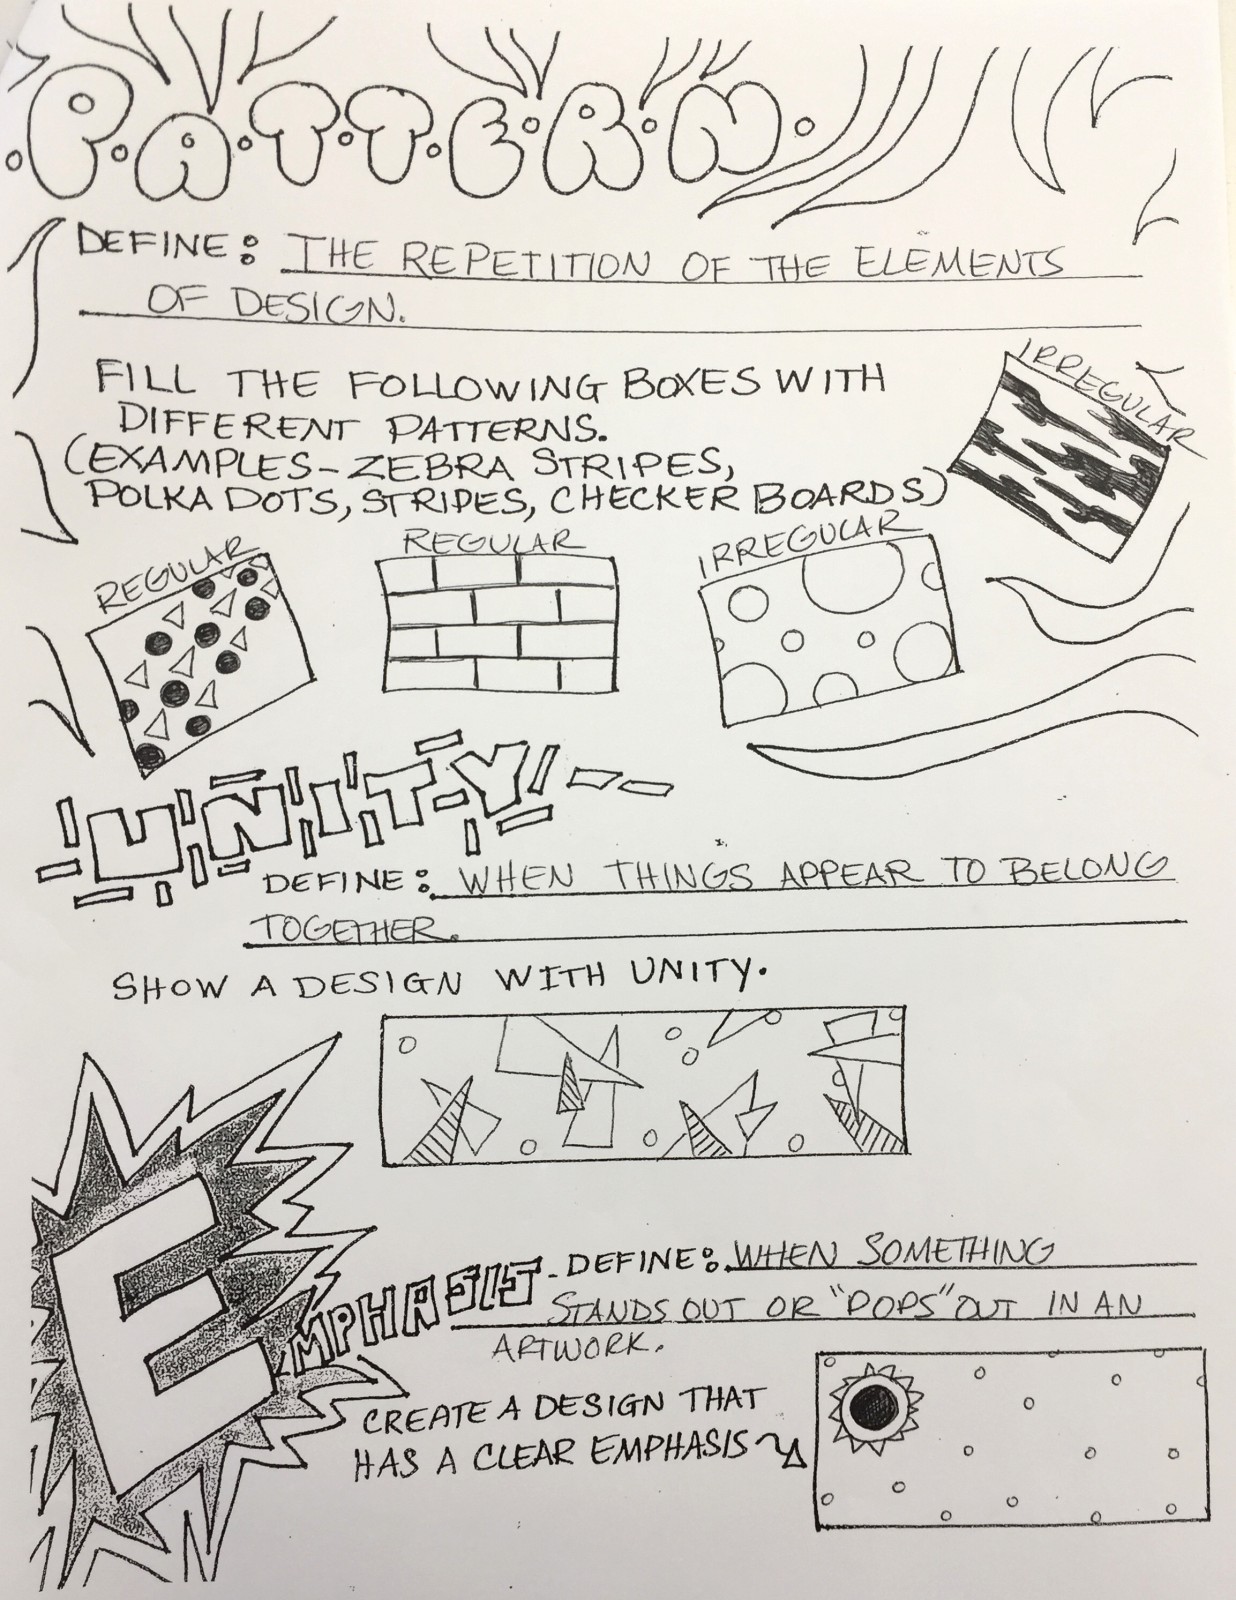 PATTERN
DEFINE: THE REPETITION OF THE ELEMENTS
OF DESIGN.
FILL THE FOLLOWING BOXES WITH
DIFFERENT PATTERNS.
(EXAMPLES - ZEBRA STRIPES,
POLKA DOTS, STRIPES, CHECKER BOARDS)
IRREGULAR
REGULAR
REGULAR
IRREGULAR
UNITY
DEFINE: WHEN THINGS APPEAR TO BELONG
TOGETHER.
SHOW A DESIGN WITH UNITY.
EMPHASIS - DEFINE: WHEN SOMETHING
STANDS OUT OR "POPS" OUT IN AN
ARTWORK.
CREATE A DESIGN THAT
HAS A CLEAR EMPHASIS